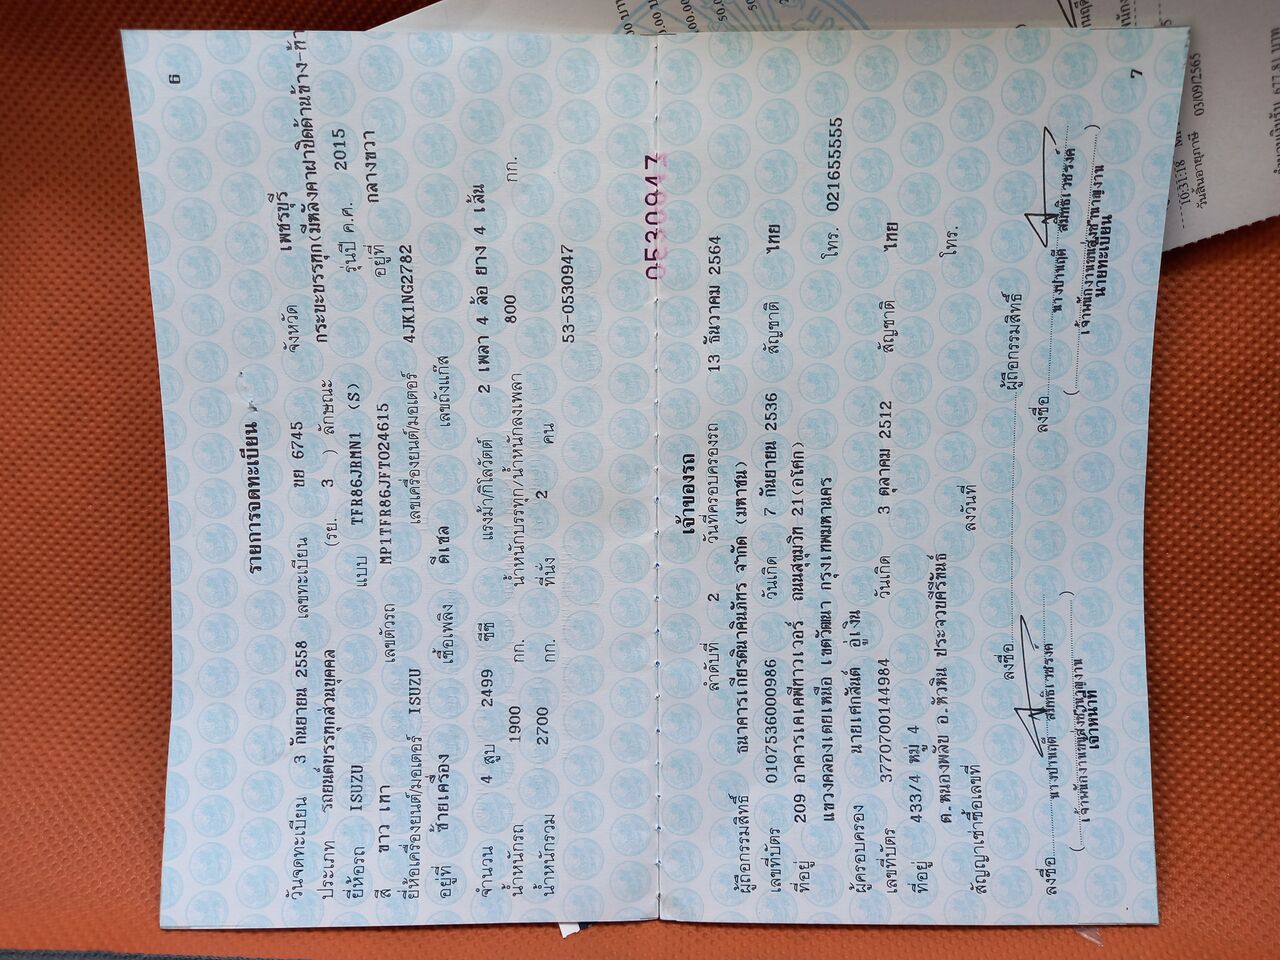 6
รายการจดทะเบียน
วันจดทะเบียน 3 กันยายน 2558 เลขทะเบียน ขย 6745 จังหวัด เพชรบุรี
ประเภท รถยนต์บรรทุกส่วนบุคคล (รย. 3 ) ลักษณะ กระบะบรรทุก(มีหลังคาฝาปิดด้านข้าง-ท้า
ยี่ห้อรถ ISUZU แบบ TFR86JRMN1 (S) รุ่นปี ค.ศ. 2015
สี ขาว เทา เลขตัวรถ MP1TFR86JFT024615 อยู่ที่ กลางขวา
ยี่ห้อเครื่องยนต์/มอเตอร์ ISUZU เลขเครื่องยนต์/มอเตอร์ 4JK1NG2782
อยู่ที่ ซ้ายเครื่อง เชื้อเพลิง ดีเซล เลขถังแก๊ส
จำนวน 4 สูบ 2499 ซีซี แรงม้า/กิโลวัตต์ 2 เพลา 4 ล้อ ยาง 4 เส้น
น้ำหนักรถ 1900 กก. น้ำหนักบรรทุก/น้ำหนักลงเพลา 800 กก.
น้ำหนักรวม 2700 กก. ที่นั่ง 2 คน
53-0530947
0530947
7
เจ้าของรถ
ลำดับที่ 2 วันที่ครอบครองรถ 13 ธันวาคม 2564
ผู้ถือกรรมสิทธิ์ ธนาคารเกียรตินาคินภัทร จำกัด (มหาชน)
เลขที่บัตร 0107536000986 วันเกิด 7 กันยายน 2536 สัญชาติ ไทย
ที่อยู่ 209 อาคารเคเคพีทาวเวอร์ ถนนสุขุมวิท 21(อโศก)
แขวงคลองเตยเหนือ เขตวัฒนา กรุงเทพมหานคร โทร. 021655555
ผู้ครอบครอง นายเศกสันต์ อู่เงิน
เลขที่บัตร 3770700144984 วันเกิด 3 ตุลาคม 2512 สัญชาติ ไทย
ที่อยู่ 433/4 หมู่ 4
ต.หนองพลับ อ.หัวหิน ประจวบคีรีขันธ์ โทร.
สัญญาเช่าซื้อเลขที่ ลงวันที่
ลงชื่อ ผู้ถือกรรมสิทธิ์
ลงชื่อ ลงชื่อ
เจ้าหน้าที่ นายทะเบียน
10:31:18
วันสิ้นอายุภาษี 03/09/2565